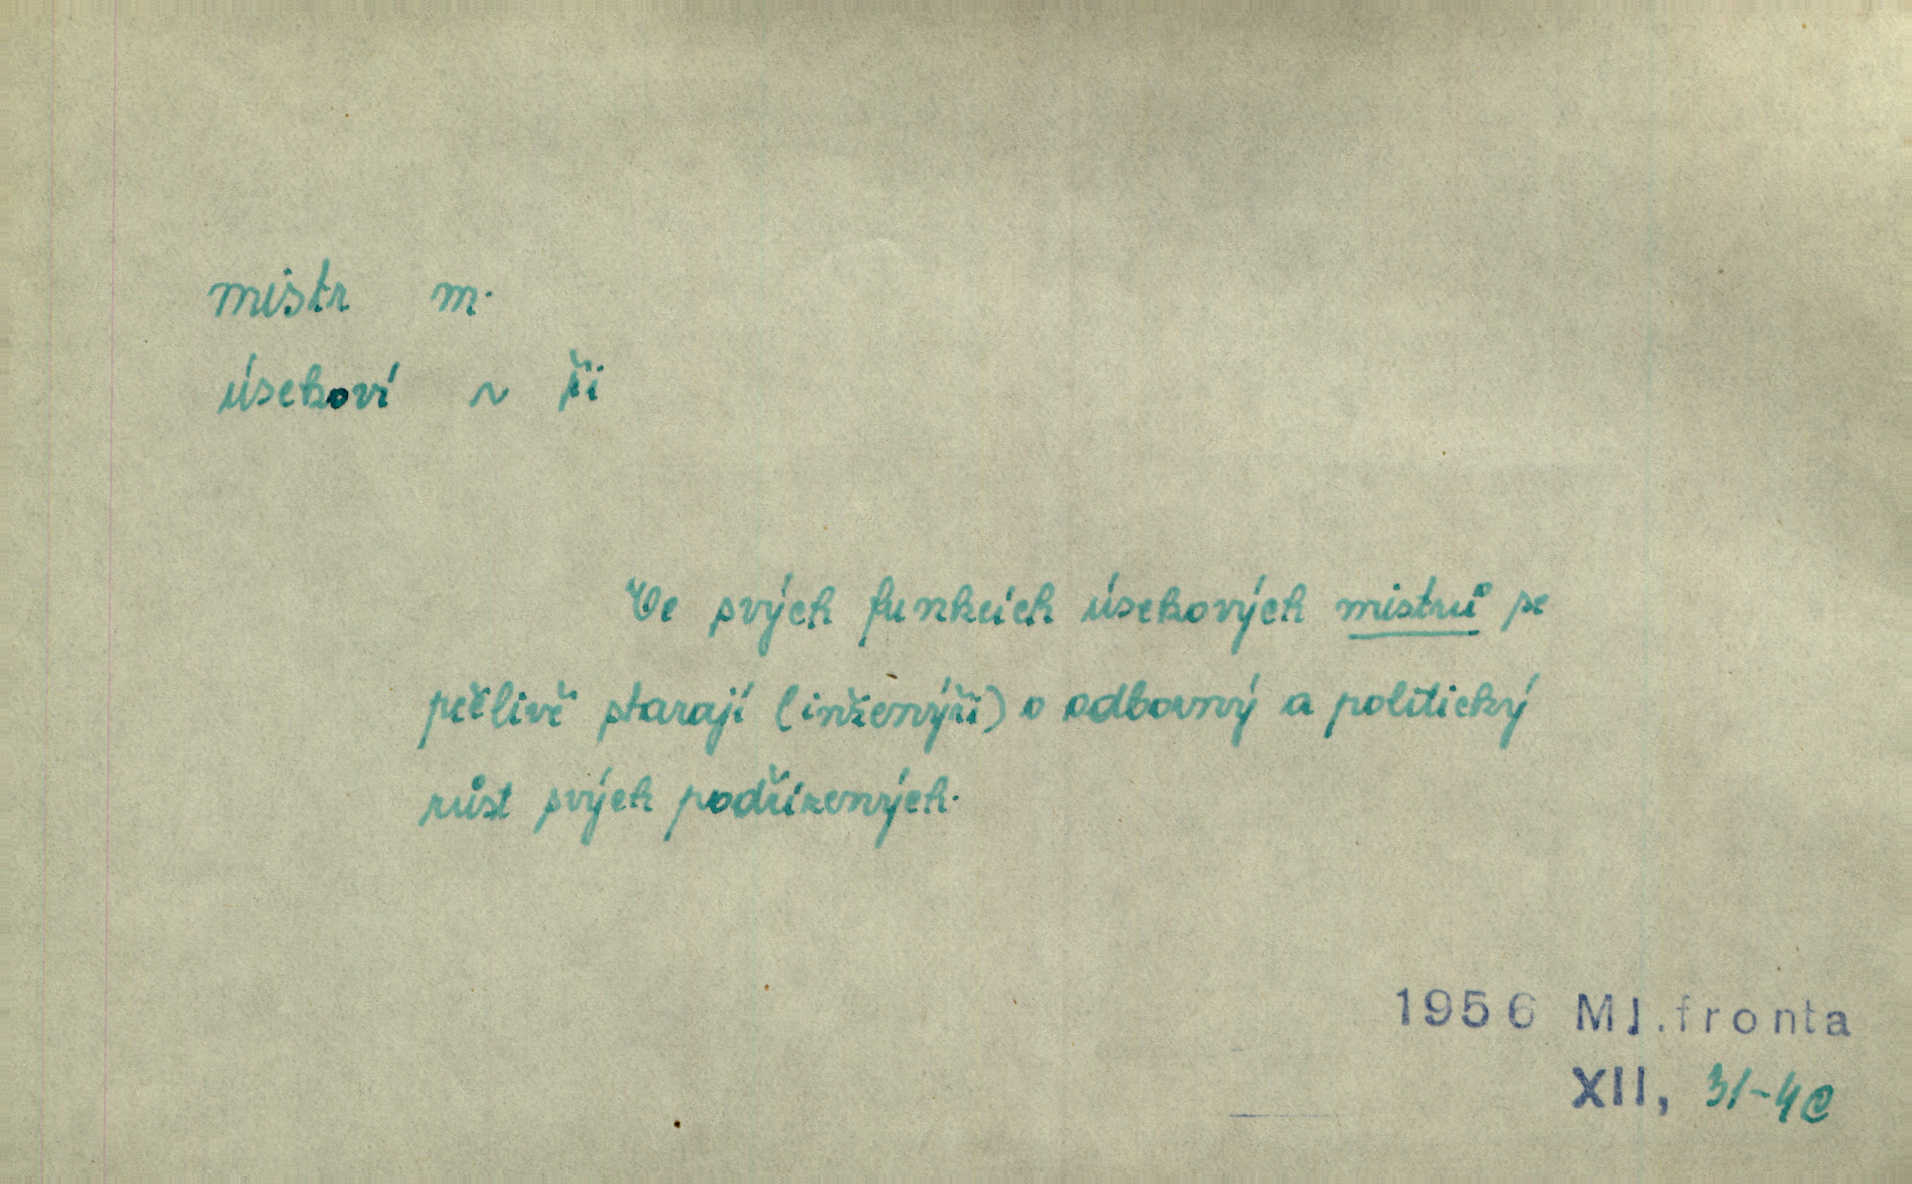 mistr m.
úsekoví ~ ři
Ve svých funkcích úsekových mistrů se
pečlivě starají (inženýři) o odborný a politický
růst svých podřízených.
1956 Ml.fronta
XII, 31-4c